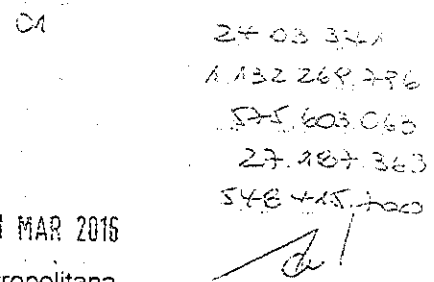 01
27 03 341
1.132 269.796
575.603.063
27.187.363
548 415.700
MAR 2016
tropolitana